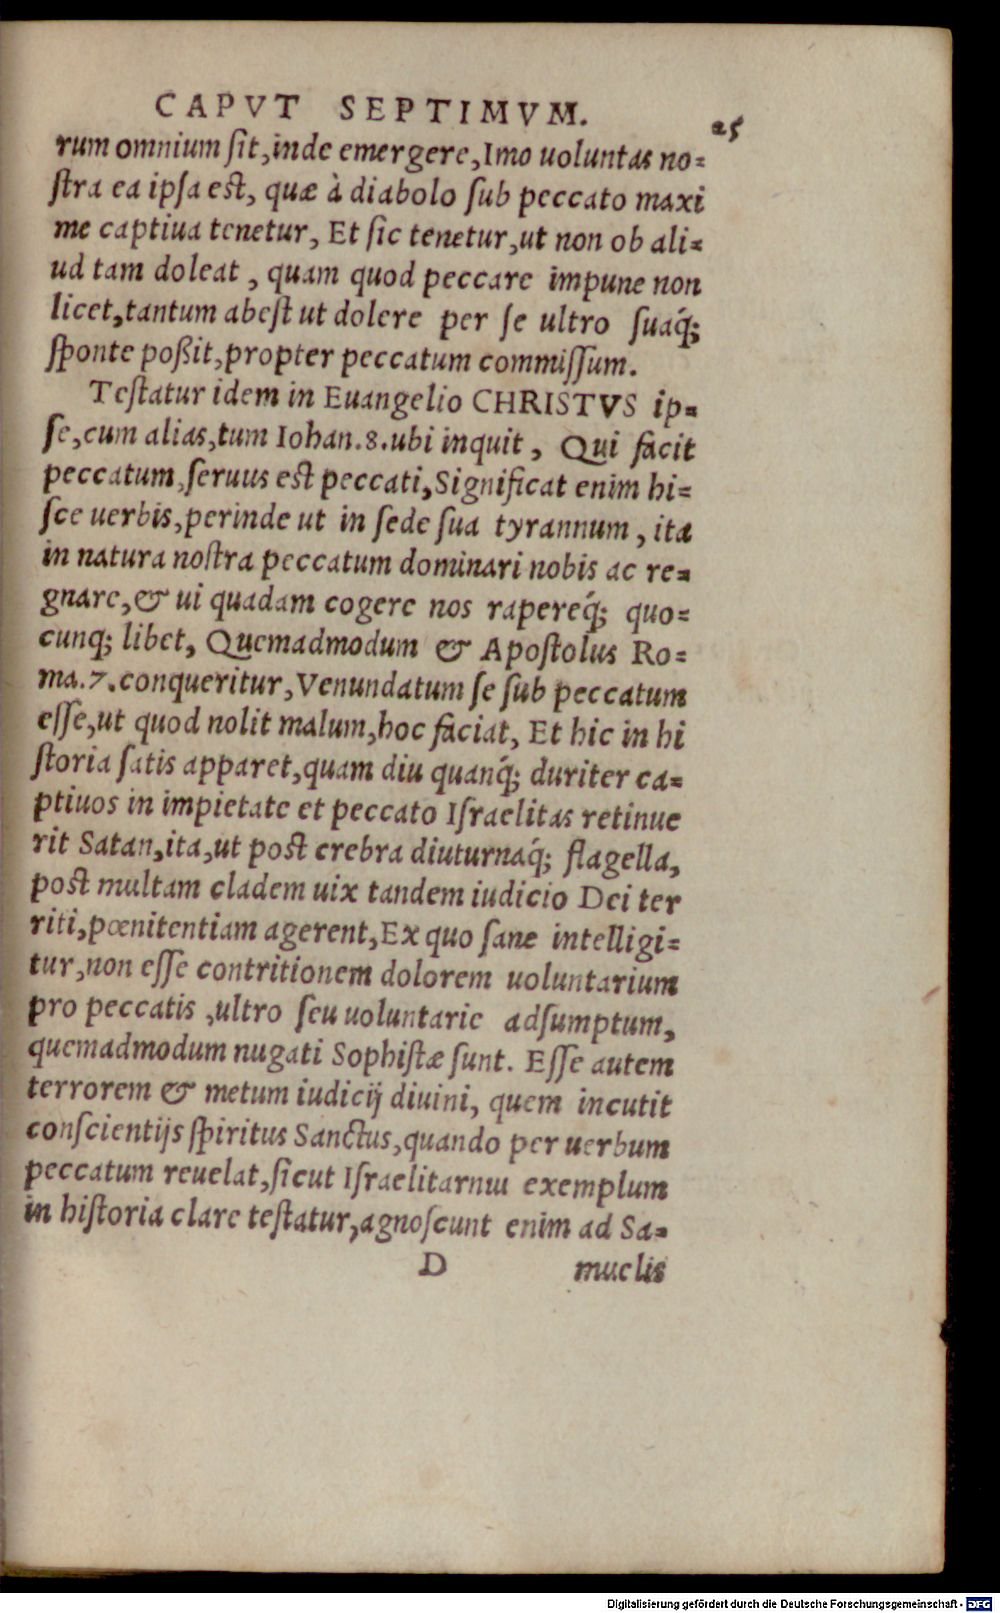 CAPVT SEPTIMVM.
25
rum omnium sit,inde emergere,Imo uoluntas no=
stra ea ipsa est, quæ à diabolo sub peccato maxi
me captiua tenetur, Et sic tenetur,ut non ob ali=
ud tam doleat , quam quod peccare impune non
licet,tantum abest ut dolere per se ultro suaq́;
sponte poßit,propter peccatum commissum.
Testatur idem in Euangelio CHRISTVS ip=
se,cum alias,tum Iohan.8.ubi inquit , Qui facit
peccatum,seruus est peccati,Significat enim hi=
sce uerbis,perinde ut in sede sua tyrannum , ita
in natura nostra peccatum dominari nobis ac re=
gnare,& ui quadam cogere nos rapereq́; quo=
cunq; libet, Quemadmodum & Apostolus Ro=
ma.7.conqueritur,Venundatum se sub peccatum
esse,ut quod nolit malum,hoc faciat, Et hic in hi
storia satis apparet,quam diu quanq́; duriter ca=
ptiuos in impietate et peccato Israelitas retinue
rit Satan,ita,ut post crebra diuturnaq́; flagella,
post multam cladem uix tandem iudicio Dei ter
riti,pœnitentiam agerent,Ex quo sane intelligi=
tur,non esse contritionem dolorem uoluntarium
pro peccatis ,ultro seu uoluntarie adsumptum,
quemadmodum nugati Sophistæ sunt. Esse autem
terrorem & metum iudicij diuini, quem incutit
conscientijs spiritus Sanctus,quando per uerbum
peccatum reuelat,sicut Israelitarnm exemplum
in historia clare testatur,agnoscunt enim ad Sa=
D muelis
Digitalisierung gefördert durch die Deutsche Forschungsgemeinschaft - DFG